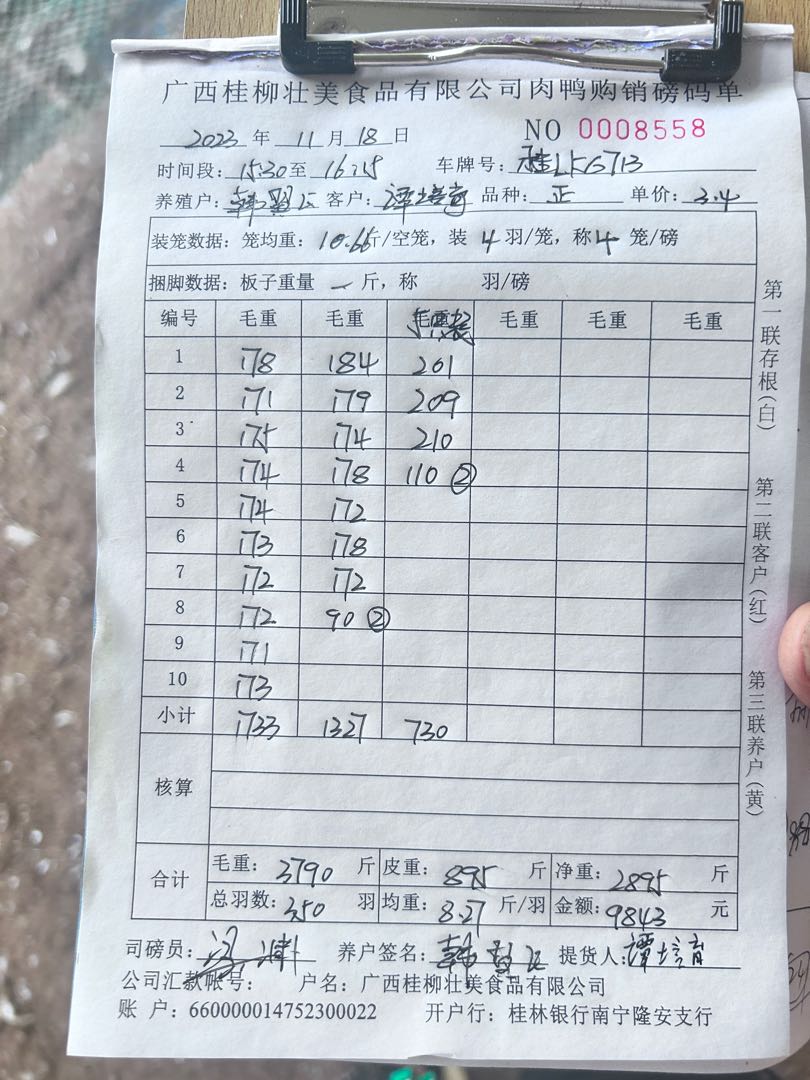 广西桂柳壮美食品有限公司肉鸭购销磅码单
2023 年 11 月 18 日 NO 0008558
时间段: 15:30 至 16:25 车牌号: 桂LKG713
养殖户: 韩 客户: 谭培育 品种: 正 单价: 3.4
装笼数据: 笼均重: 10.65 斤/空笼, 装 4 羽/笼, 称 4 笼/磅
捆脚数据: 板子重量 一 斤, 称 羽/磅
编号 毛重 毛重 毛重 毛重 毛重 毛重
1 178 184 201
2 171 179 209
3 175 174 210
4 174 178 110 ②
5 174 172
6 173 178
7 172 172
8 172 90 ②
9 171
10 173
小计 1733 1327 730
核算
合计 毛重: 3790 斤 皮重: 895 斤 净重: 2895 斤
总羽数: 350 羽 均重: 8.27 斤/羽 金额: 9843 元
司磅员: 养户签名: 韩 提货人: 谭培育
公司汇款帐号: 户名: 广西桂柳壮美食品有限公司
账 户: 660000014752300022 开户行: 桂林银行南宁隆安支行
第一联存根(白)
第二联客户(红)
第三联养户(黄)